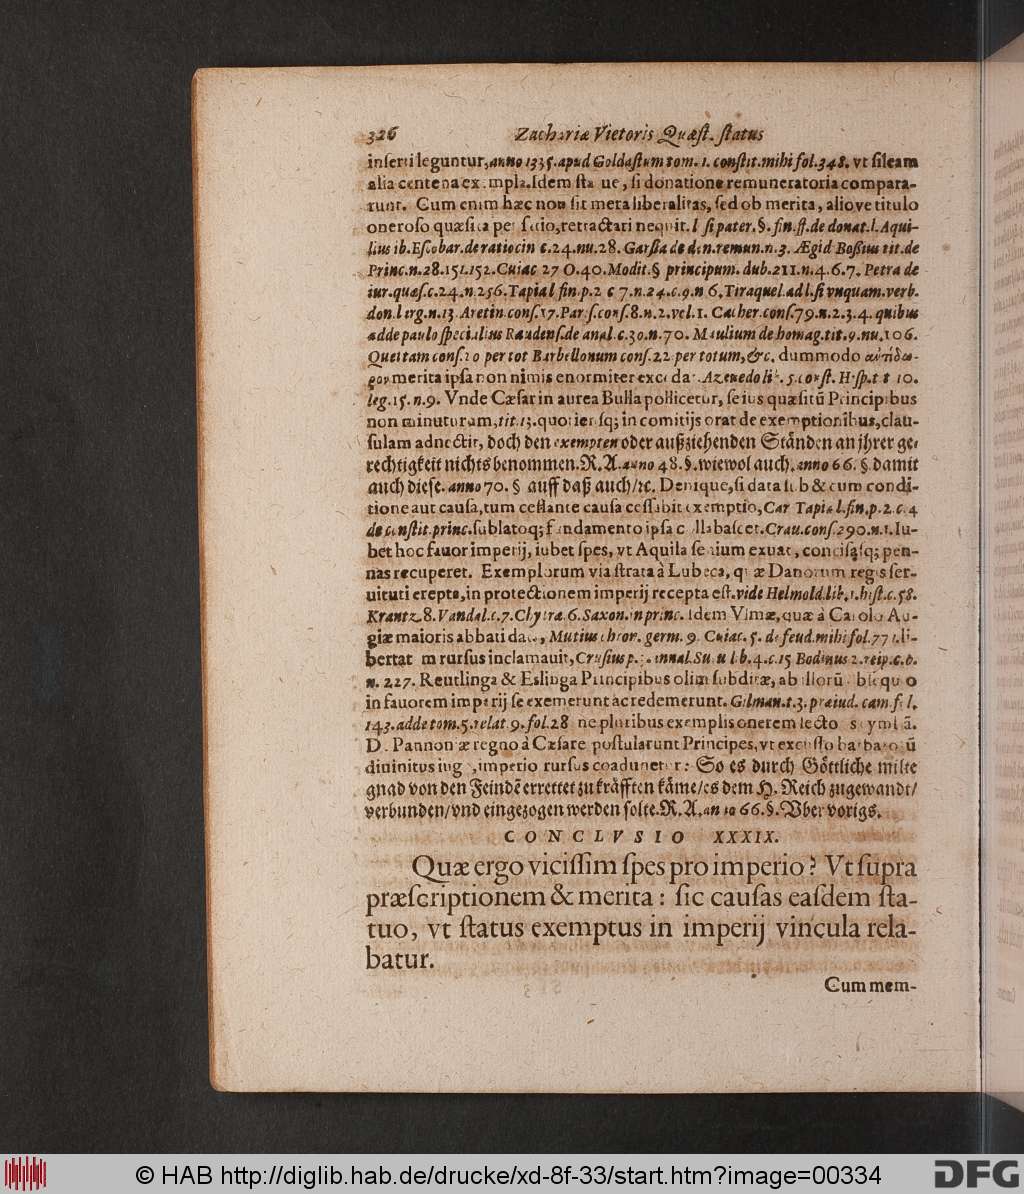 326 Zachariæ Vietoris Quæſt. ſtatus
inſerti leguntur, anno 1335. apud Goldaſtum tom. 1. conſtit. mihi fol. 348. vt ſileam
alia centena exempla. Idem ſtatue, ſi donatione remuneratoria compara-
runt. Cum enim hæc non ſit mera liberalitas, ſed ob merita, aliove titulo
oneroſo quæſita perfectio, retractari nequit. l ſi pater. §. fin. ff. de donat. l. Aqui-
lius ib. Eſcobar. de ratiocin c. 24. nu. 28. Garſia de don. remun. n. 3. Ægid Boßius tit. de
Princ. n. 28. 151. 152. Cuiac 27 O. 40. Modit. § principum. dub. 211. n. 4. 6. 7. Petra de
iur. quæſ. c. 24. n. 256. Tapia l fin. p. 2 c 7. n. 24. c. 9. n 6. Tiraquel. ad l. ſi vnquam. verb.
don. l irg. n. 13. Aretin. conſ. 17. Pariſ. conſ. 8. n. 2. vel. 1. Cacher. conſ. 79. n. 2. 3. 4. quibus
adde paulo ſpecialius Raudenſ. de anal. c. 30. n. 70. Maulium de homag. tit. 9. nu. 106.
Quettam conſ. 20 per tot Barbellonum conſ. 22 per totum, &c. dummodo
merita ipſa non nimis enormiter excedat. Azeuedo lib. 5. conſt. Hiſp. t. 10.
leg. 15. n. 9. Vnde Cæſar in aurea Bulla pollicetur, ſe ius quæſitū Principibus
non minuturum, tit. 13. quotienſq; in comitijs orat de exemptionibus, clau-
ſulam adnectit, doch den exempten oder außziehenden Ständen an jhrer ge⸗
rechtigkeit nichts benommen. R. A. anno 48. §. wiewol auch. anno 66. §. damit
auch dieſe. anno 70. § auff daß auch/ ꝛc. Denique, ſi data ſub & cum condi-
tione aut cauſa, tum ceſſante cauſa ceſſabit exemptio, Car Tapia l. fin. p. 2. c. 4
de conſtit. princ. ſublatoq; fundamento ipſa collabaſcet. Crau. conſ. 290. n. 1. Iu-
bet hoc fauor imperij, iubet ſpes, vt Aquila ſenium exuat, conciſaſq; pen-
nas recuperet. Exemplorum via ſtrata à Lubeca, quæ Danorum regis ſer-
uituti erepta, in protectionem imperij recepta eſt. vide Helmold. lib. 1. hiſt. c. 58.
Krantz. 8. Vandal. c. 7. Chytræ. 6. Saxon. in princ. Idem Vlmæ, quæ à Carolo Au-
giæ maioris abbati data, Mutius chror. germ. 9. Cuiac. 5. de feud. mihi fol. 771. li-
bertatem rurſus inclamauit, Cruſius p. 3. annal. Sueu lib. 4. c. 15 Bodinus 2. reip. c. 6.
n. 227. Reutlinga & Eslinga Principibus olim ſubditæ, ab illorū obſequio
in fauorem imperij ſe exemerunt ac redemerunt. Gilman. t. 3. præiud. cam. fol.
143. adde tom. 5. relat. 9. fol. 28 ne pluribus exemplis onerem lecto
D. Pannoniæ regno à Cæſare poſtularunt Principes, vt excuſſo barbarorū
diuinitus iugo, imperio rurſus coadunetur: So es durch Göttliche milte
gnad von den Feindē errettet zu kräfften käme/ es dem H. Reich zugewandt/
verbunden/ vnd eingezogen werden ſolte. R. A. an 1566. §. Vber vorigs.
CONCLVSIO XXXIX.
Quæ ergo viciſſim ſpes pro imperio? Vt ſupra
præſcriptionem & merita: ſic cauſas eaſdem ſta-
tuo, vt ſtatus exemptus in imperij vincula rela-
batur.
Cum mem-
© HAB http://diglib.hab.de/drucke/xd-8f-33/start.htm?image=00334
DFG